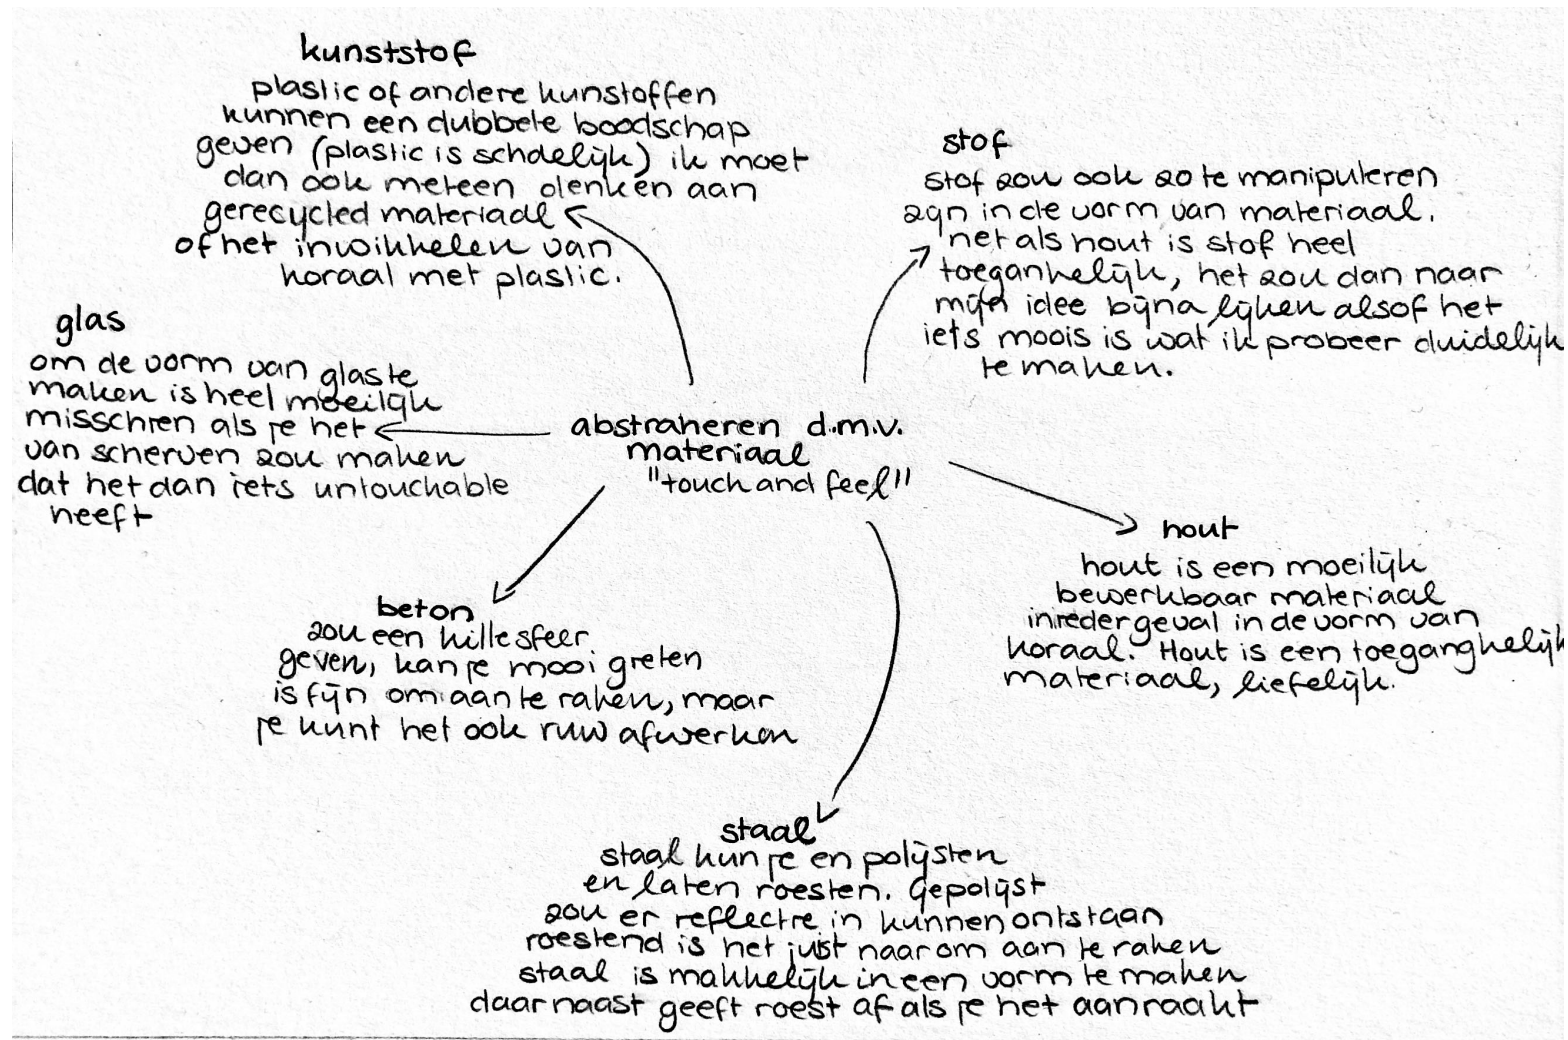 kunststof
plastic of andere kunstoffen
kunnen een dubbele boodschap
geven (plastic is schdelijk) ik moet
dan ook meteen denken aan
gerecycled materiaal
of het inwikkelen van
koraal met plastic.
stof
stof zou ook zo te manipuleren
zijn in de vorm van materiaal.
net als hout is stof heel
toegankelijk, het zou dan naar
mijn idee bijna lijken alsof het
iets moois is wat ik probeer duidelijk
te maken.
glas
om de vorm van glas te
maken is heel moeilijk
misschien als je het
van scherven zou maken
dat het dan iets untouchable
heeft
abstraheren d.m.v.
materiaal
"touch and feel"
hout
hout is een moeilijk
bewerkbaar materiaal
in ieder geval in de vorm van
koraal. Hout is een toeganghelijk
materiaal, liefelijk.
beton
zou een kille sfeer
geven, kan je mooi gieten
is fijn om aan te raken, maar
je kunt het ook ruw afwerken
staal
staal kun je en polijsten
en laten roesten. Gepolijst
zou er reflectie in kunnen ontstaan
roestend is het juist naar om aan te raken
staal is makkelijk in een vorm te maken
daarnaast geeft roest af als je het aanraakt